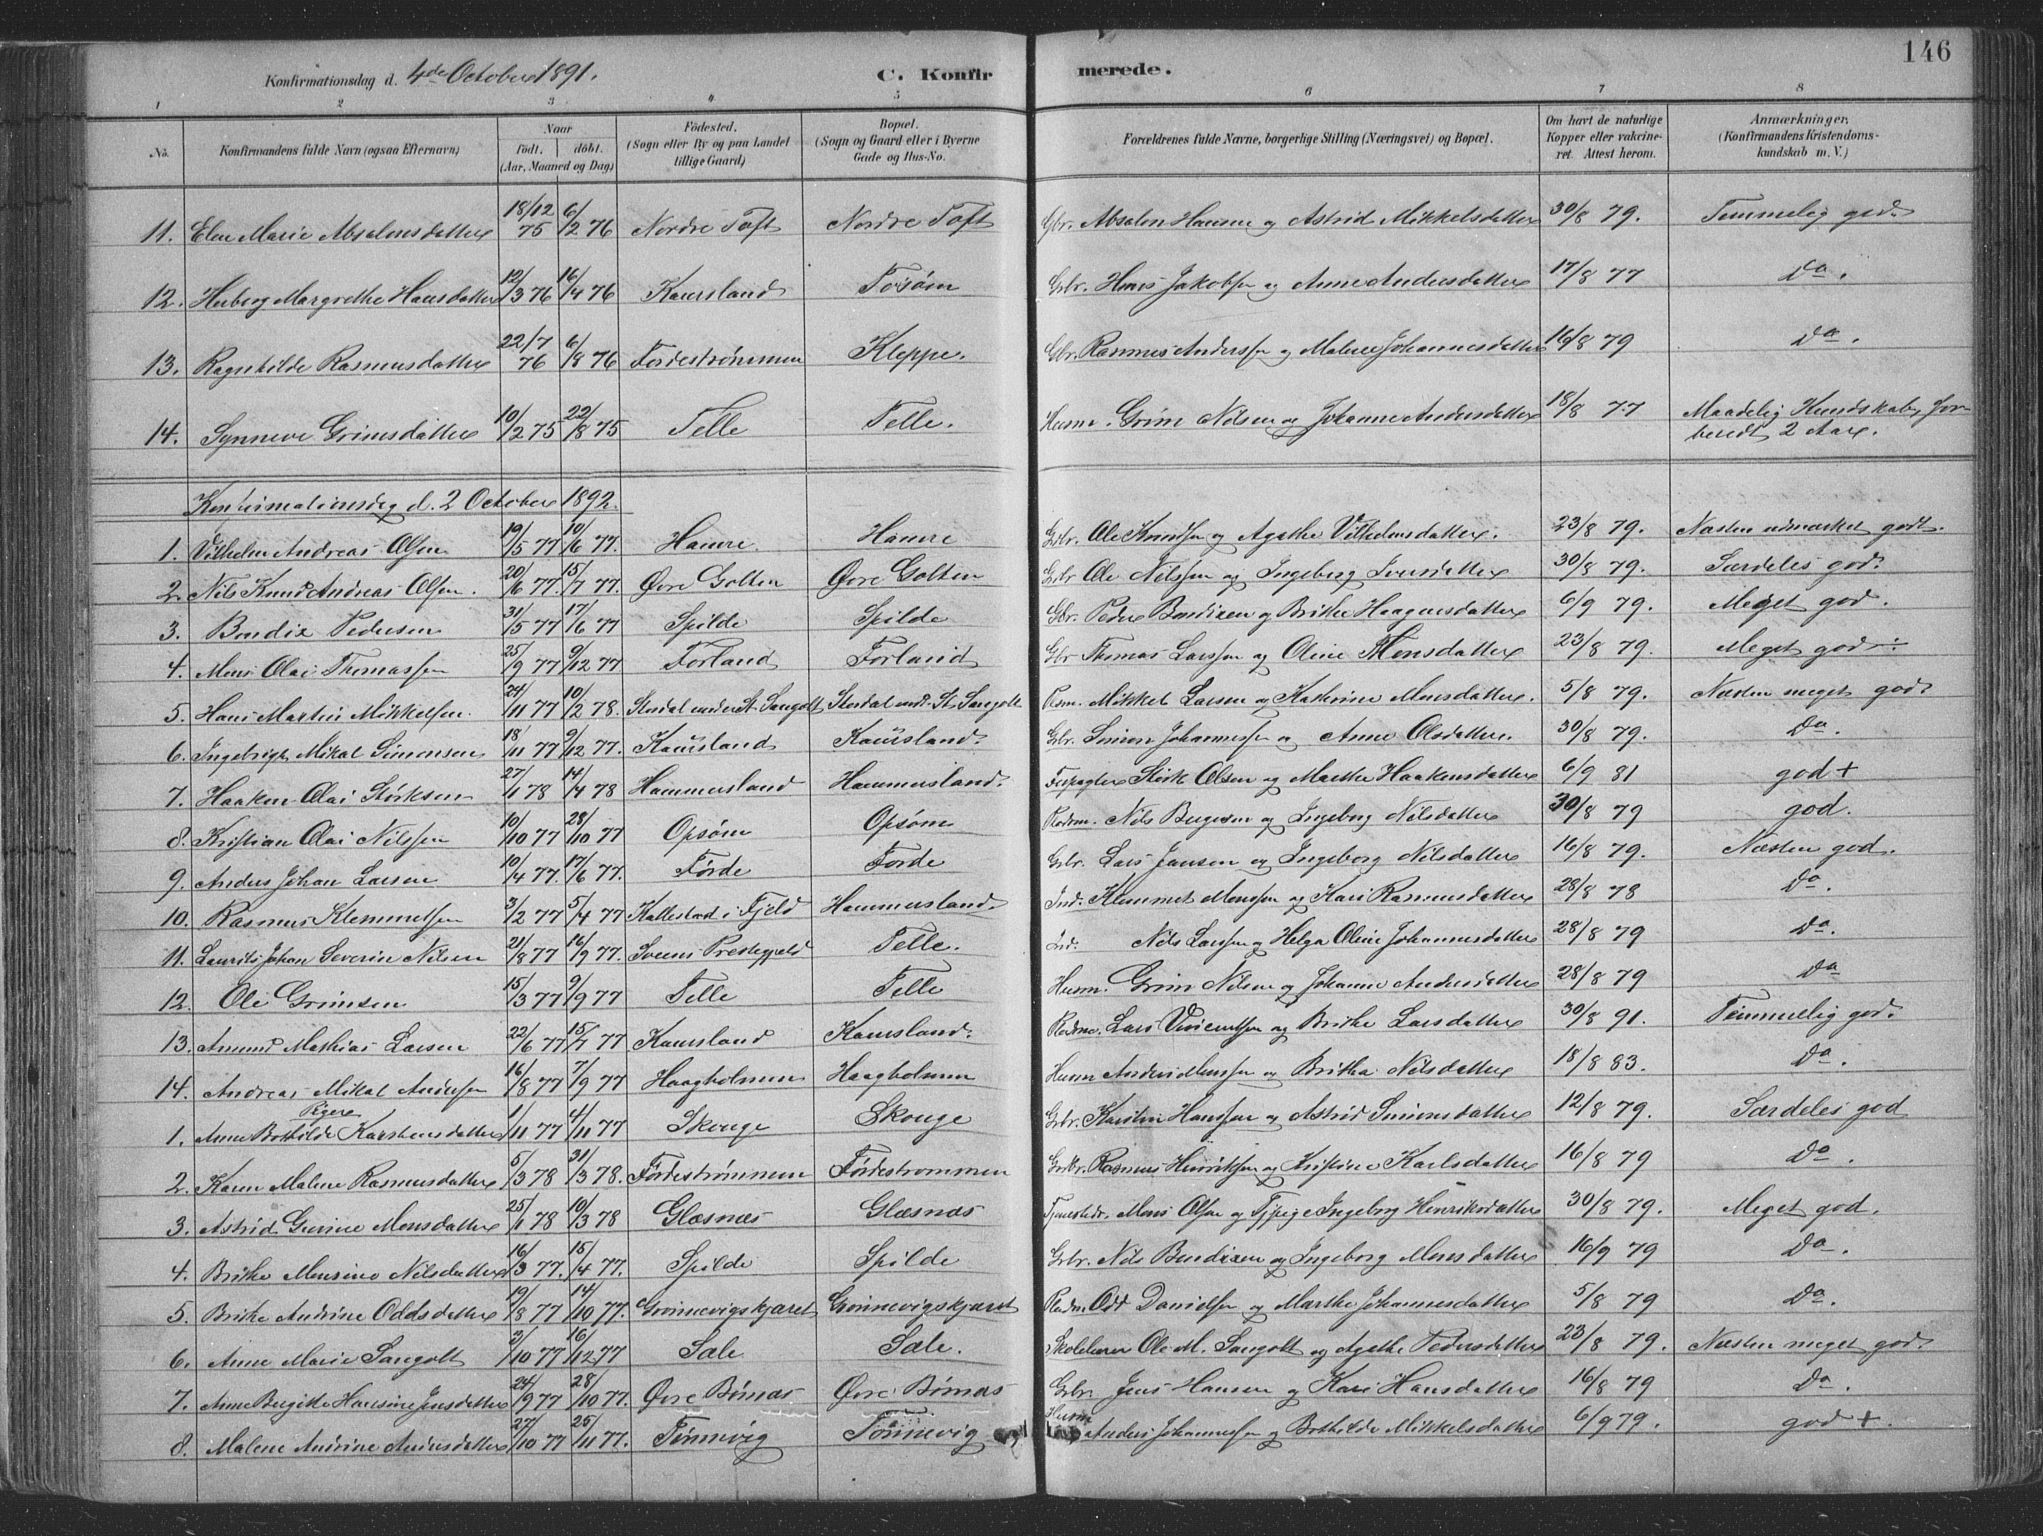 146
Konfirmationsdag d. 4de October 1891. C. Konfirmerede.
1 2 3 4 5 6 7 8
No. Konfirmandens fulde Navn (ogsaa Efternavn) Naar født. døbt. (Aar, Maaned og Dag) Fødested. (Sogn eller By og paa Landet tillige Gaard) Bopæl. (Sogn og Gaard eller i Byerne Gade og Hus-No. Forældrenes fulde Navne, borgerlige Stilling (Næringsvei) og Bopæl. Om havt de naturlige Kopper eller vakcineret. Attest herom. Anmærkninger. (Konfirmandens Kristendomskundskab m. V.)
11. Elen Marie Absalonsdatter 18/12 75 6/2 76 Nordre Toft Nordre Toft Gbr. Absalon Hansen og Astrid Mikkelsdatter 30/8 79. Temmelig god.
12. Herborg Margrethe Hansdatter 12/3 76 16/4 76 Kausland Tosøm Gbr. Hans Jakobsen og Anne Andersdatter 17/8 77 do.
13. Ragnhilde Rasmusdatter 22/7 76 6/8 76 Førdestrømmen Kleppe. Gbr. Rasmus Anderssen og Malene Johannesdatter 16/8 79 do.
14. Synneve Grimsdatter 10/2 75 22/8 75 Telle Telle. Husm. Grim Nilsen og Johanne Andersdatter 18/8 77 Maadelig Kundskab, forberedt 2 Aar.
Konfirmationsdag d. 2 October 1892.
1. Vilhelm Andreas Olsen 19/5 77 10/6 77. Hamre. Hamre Gbr. Ole Knudsen og Agathe Vilhelmsdatter. 23/8 79. Næsten udmærket godt.
2. Nils Knud Andreas Olsen. 20/6 77. 15/7 77. Øvre Golten Øvre Golten Gbr Ole Nilssen og Ingeborg Iversdatter 30/8 79. Særdeles god.
3. Bendix Pedersen 31/5 77 17/6 77 Spilde Spilde Gbr. Peder Bendixen og Brithe Haagensdatter 6/9 79. Meget god.
4. Mons Olai Thomassen 25/9 77 9/12 77 Forland Forland Gbr Thomas Larssen og Oline Monsdatter 23/8 79. Meget god.
5. Hans Martin Mikkelsen. 24/11 77 10/2 78. Stordal under St. Sangolt Stordal und. St. Sangolt Pl.sm. Mikkel Larsen og Kathrine Monsdatter. 5/8 79. Næsten meget god.
6. Ingebrigt Mikal Simonsen 18/11 77 9/12 77. Kausland Kausland. Gbr. Simon Johannessen og Anne Olsdatter. 30/8 79. do.
7. Haakon Olai Størksen 27/1 78 14/4 78 Hammersland Hammersland. Størk Olsen og Marthe Haakensdatter 6/9 81 god +
8. Kristian Olai Nilssen 10/10 77 28/10 77 Opsøm Opsøm Pladsm. Nils Bergesen og Ingeborg Nilsdatter 30/8 79 god.
9. Anders Johan Larsen 10/4 77. 17/6 77. Førde Førde Gbr. Lars Jansen og Ingeborg Nilsdatter 16/8 79. Næsten god.
10. Rasmus Klemmetsen 3/2 77 5/4 77 Kallestad i Fjeld Hammersland. Ind. Klemmet Monssen og Kari Rasmusdatter 28/8 78 do.
11. Laurits Johan Severin Nilsen 21/8 77 16/9 77. Sveens Prestegjeld Telle. Ind. Nils Larssen og Helga Oline Johannesdatter 28/8 79 do.
12. Ole Grimsen 15/3 77 9/9 77 Telle Telle Husm. Grim Nilsen og Johanne Andersdatter 28/8 79 do
13. Amund Mathias Larsen 22/6 77 15/7 77 Kausland Kausland. Pladsm. Lars Vincentsen og Brithe Larsdatter 30/8 91. Temmelig god.
14. Andreas Mikal Andersen 16/8 77 7/9 77 Haagholmen Haagholmen Husm Anders Monssen og Britha Nilsdatter 18/8 83. do.
Piger
1. Anne Bothilde Karstensdatter 1/11 77 4/11 77 Skouge Skouge Gbr. Karsten Hanssen og Astrid Simonsdatter 12/8 79. Særdeles god
2. Karen Malene Rasmusdatter 5/3 78 31/3 78. Førdestrømmen Førdestrommen Gbr. Rasmus Henriksen og Kristine Karlsdatter 16/8 79 do.
3. Astrid Gurine Monsdatter 25/1 78 10/3 78 Glæsnæs Glæsnæs Mons Olsen og Pige Ingeborg Henriksdatter 30/8 79. Meget god.
4. Brithe Monsine Nilsdatter 16/3 77. 15/4 77. Spilde Spilde Gbr. Nils Bendixen og Ingeborg Monsdatter 16/9 79 do.
5. Brithe Andrine Oddsdatter 19/8 77 14/10 77. Grønnevigskjæret Grønnevigskjæret Pladsm Odd Danielsen og Marthe Johannesdatter 5/8 79 do.
6. Anne Marie Sangolt 3/10 77 16/12 77 Sæle Sæle. Skolelærer Ole M. Sangolt og Agathe Pedersdatter 23/8 79. Næsten meget god.
7. Anne Bergitte Hansine Jensdatter 24/9 77 28/10 77. Øvre Børnæs Øvre Børnæs Gbr. Jens Hansen og Kari Hansdatter 16/8 79 do.
8. Malene Andrine Andersdatter 27/10 77 25/11 77. Tønnevig Tønnevig Husm Anders Johannessen og Bothilde Mikkelsdatter 6/9 79. god +.